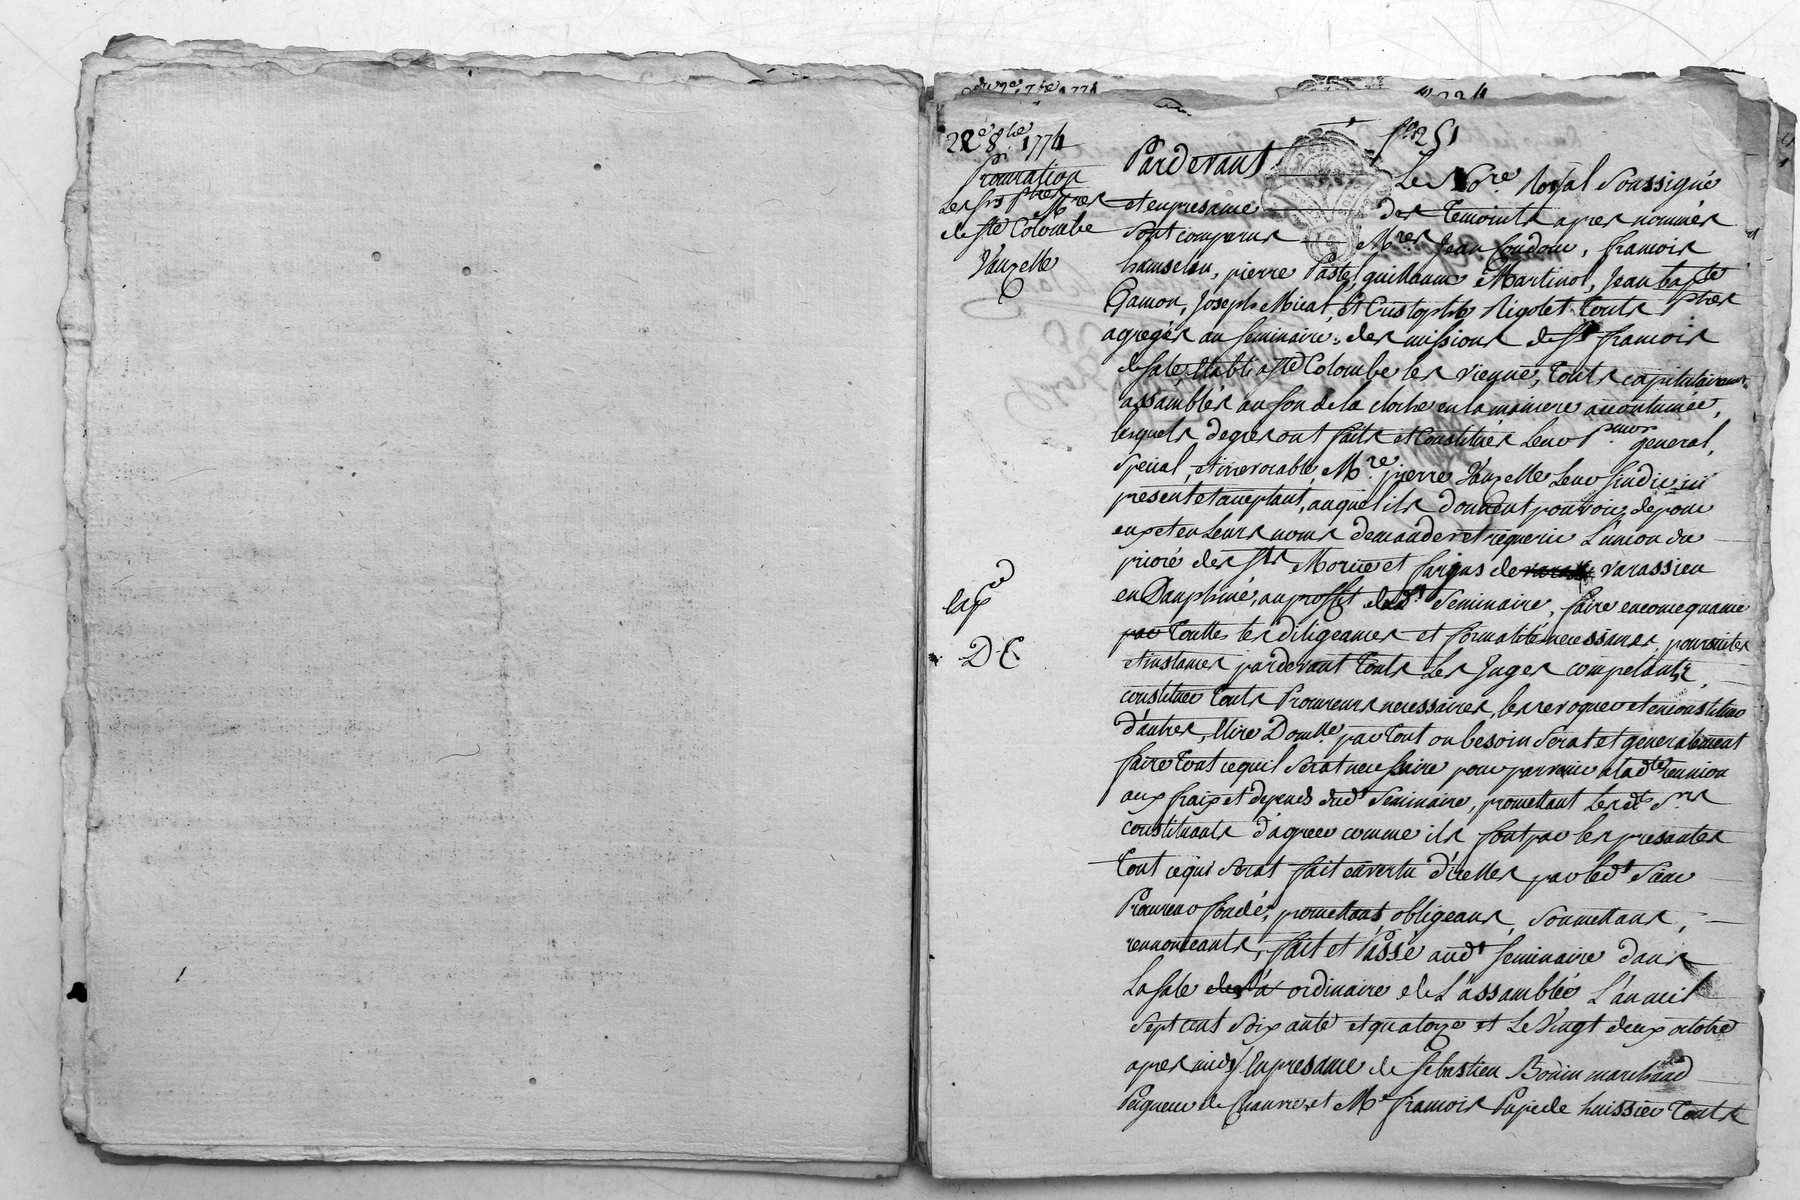 22e 8bre 1774
Procuration
Les srs pbres Mres
de ste Colombe
Vauzelle
lapce
D C
fo 251
Pardevant Le Nore Royal Soussigné
et en presance des Temoints apres nommés
sont comparus Mres Jean Coudour, francois
hanselin, pierre Pastel, guilhaume Martinot, Jean bapte
Gamon, Joseph Micat, Et Cristophle Rigolet Touts pbres
agregés au Seminaire des missions de st francois
de sale, Etabli a ste Colombe les vienne, Touts capitulairemt
assamblés au son de la cloche en la maniere accoutumée,
lesquels, de gre ont faits et Constitués Leur Pmur general,
Special, et irrevocable, Mre pierre Vauzelle Leur sindic ici
present et acceptant, auquel ils donnent pouvoir, de pour
eux et en Leurs noms demander et requerir L'union du
prioré des sts Morice et fargus de varassieu
en Dauphiné, au proffit dudt Seminaire, faire en consequance
par Touttes les diligeances et formalité necessaires, poursuites
et instances pardevant Touts Les Juges competants,
constituer Touts Procureurs necessaires, les revoquer et en constituer
d'autres, Elire Domlle par Tout ou besoin Serat et generalement
faire Tout ce quil Serat necessaire pour parvenir a ladte reunion
aux fraix et depends dudt Seminaire, promettant Lesdts Srs
constituants d'agreer comme ils font par les presantes
Tout ce qui Serat fait en vertu d'icelles par ledt Sieur
Procureur fondé, promettant, obligeant, Soumettant,
rennonceants, fait et Passé audt Seminaire dans
La Sale de la ordinaire de L'assamblée L'an mil
Sept cent Soixante et quatorze et Le Vingt deux octobre
apres midy En presance de Sebastien Bouin marchand
Peigneur de Chanvre, et Me francois Papede huissier Touts